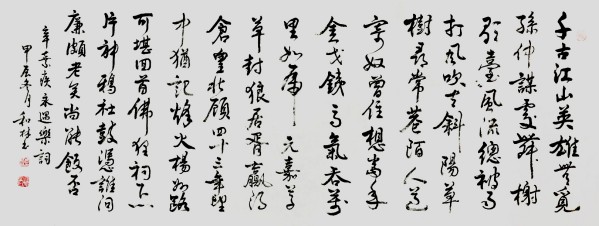 千古江山英雄無覓
孫仲謀處舞榭
歌臺風流總被雨
打風吹去斜陽草
樹尋常巷陌人道
寄奴曾住想當年
金戈鐵馬氣吞萬
里如虎元嘉草
草封狼居胥贏得
倉皇北顧四十三年望
中猶記烽火揚州路
可堪回首佛狸祠下一
片神鴉社鼓憑誰問
廉頗老矣尚能飯否
辛棄疾永遇樂詞
甲辰冬月